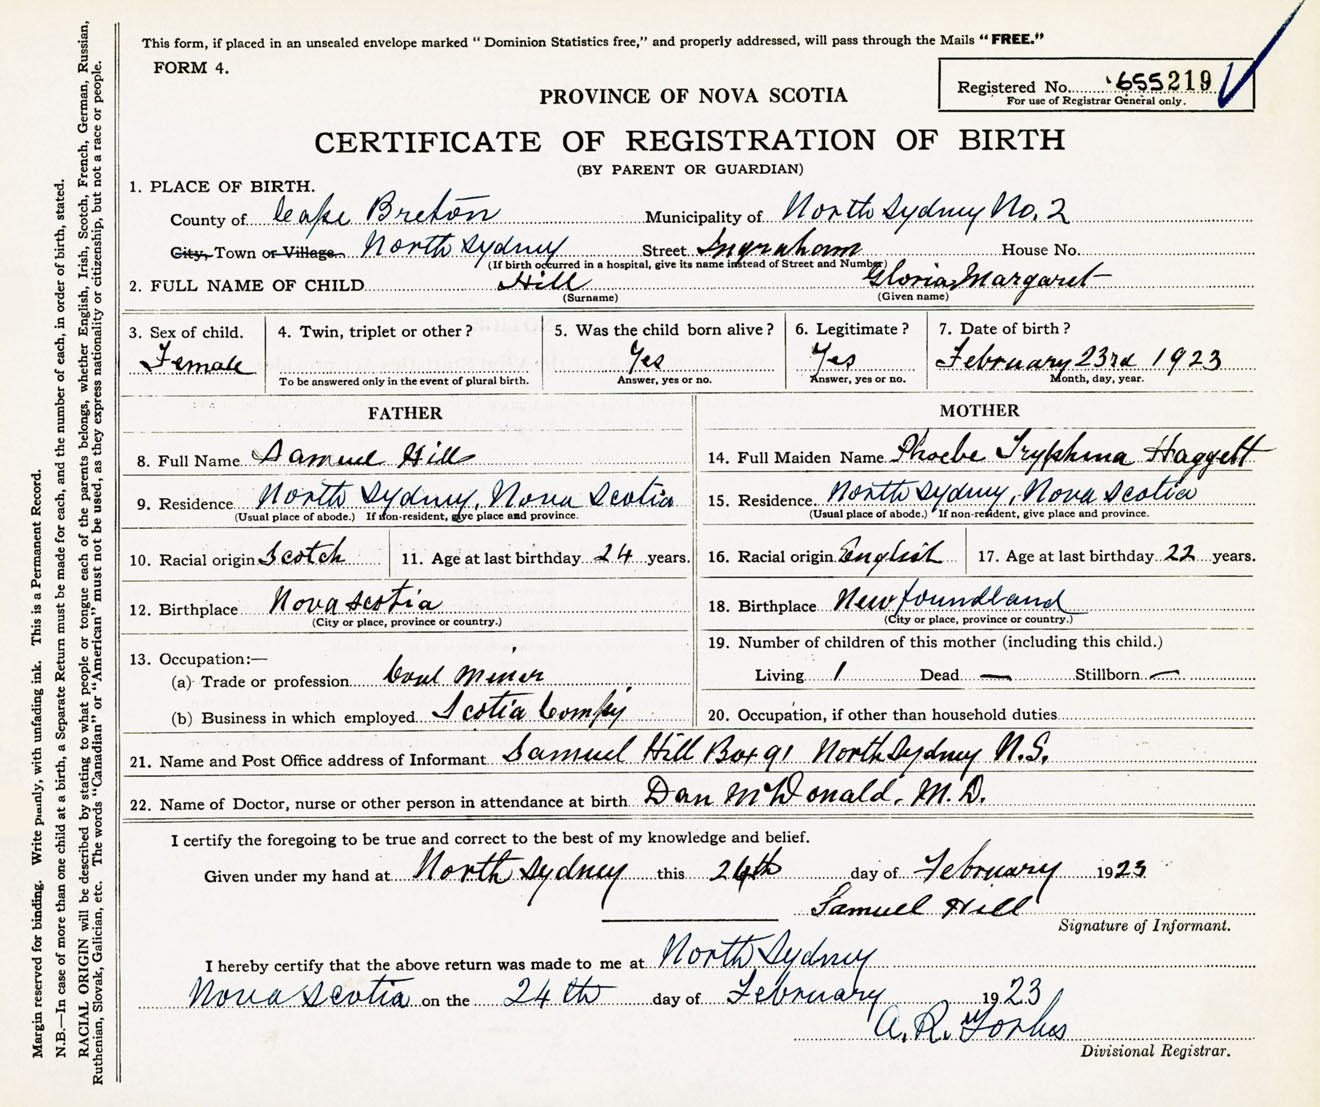 This form, if placed in an unsealed envelope marked “ Dominion Statistics free,” and properly addressed, will pass through the Mails “ FREE.”
FORM 4.
Registered No. 655219
For use of Registrar General only.
PROVINCE OF NOVA SCOTIA
CERTIFICATE OF REGISTRATION OF BIRTH
(BY PARENT OR GUARDIAN)
1. PLACE OF BIRTH.
County of Cape Breton Municipality of North Sydney No. 2
City, Town or Village North Sydney Street Ingraham House No.
(If birth occurred in a hospital, give its name instead of Street and Number)
2. FULL NAME OF CHILD Hill Gloria Margaret
(Surname) (Given name)
3. Sex of child. 4. Twin, triplet or other? 5. Was the child born alive? 6. Legitimate? 7. Date of birth?
Female Yes Yes February 23rd 1923
To be answered only in the event of plural birth. Answer, yes or no. Answer, yes or no. Month, day, year.
FATHER MOTHER
8. Full Name Samuel Hill 14. Full Maiden Name Phoebe Tryphina Haggett
9. Residence North Sydney, Nova Scotia 15. Residence North Sydney, Nova Scotia
(Usual place of abode.) If non-resident, give place and province. (Usual place of abode.) If non-resident, give place and province.
10. Racial origin Scotch 11. Age at last birthday 24 years. 16. Racial origin English 17. Age at last birthday 22 years.
12. Birthplace Nova Scotia 18. Birthplace Newfoundland
(City or place, province or country.) (City or place, province or country.)
19. Number of children of this mother (including this child.)
13. Occupation:—
(a) Trade or profession Coal Miner Living 1 Dead — Stillborn —
(b) Business in which employed Scotia Compy 20. Occupation, if other than household duties
21. Name and Post Office address of Informant Samuel Hill Box 91 North Sydney N.S.
22. Name of Doctor, nurse or other person in attendance at birth Dan McDonald. M.D.
I certify the foregoing to be true and correct to the best of my knowledge and belief.
Given under my hand at North Sydney this 24th day of February 1923
Samuel Hill
Signature of Informant.
I hereby certify that the above return was made to me at North Sydney
Nova Scotia on the 24th day of February 1923
A. R. Forbes
Divisional Registrar.
Margin reserved for binding. Write plainly, with unfading ink. This is a Permanent Record.
N.B.—In case of more than one child at a birth, a Separate Return must be made for each, and the number of each, in order of birth, stated.
RACIAL ORIGIN will be described by stating to what people or tongue each of the parents belongs, whether English, Irish, Scotch, French, German, Russian,
Ruthenian, Slovak, Galician, etc. The words “Canadian” or “American” must not be used, as they express nationality or citizenship, but not a race or people.